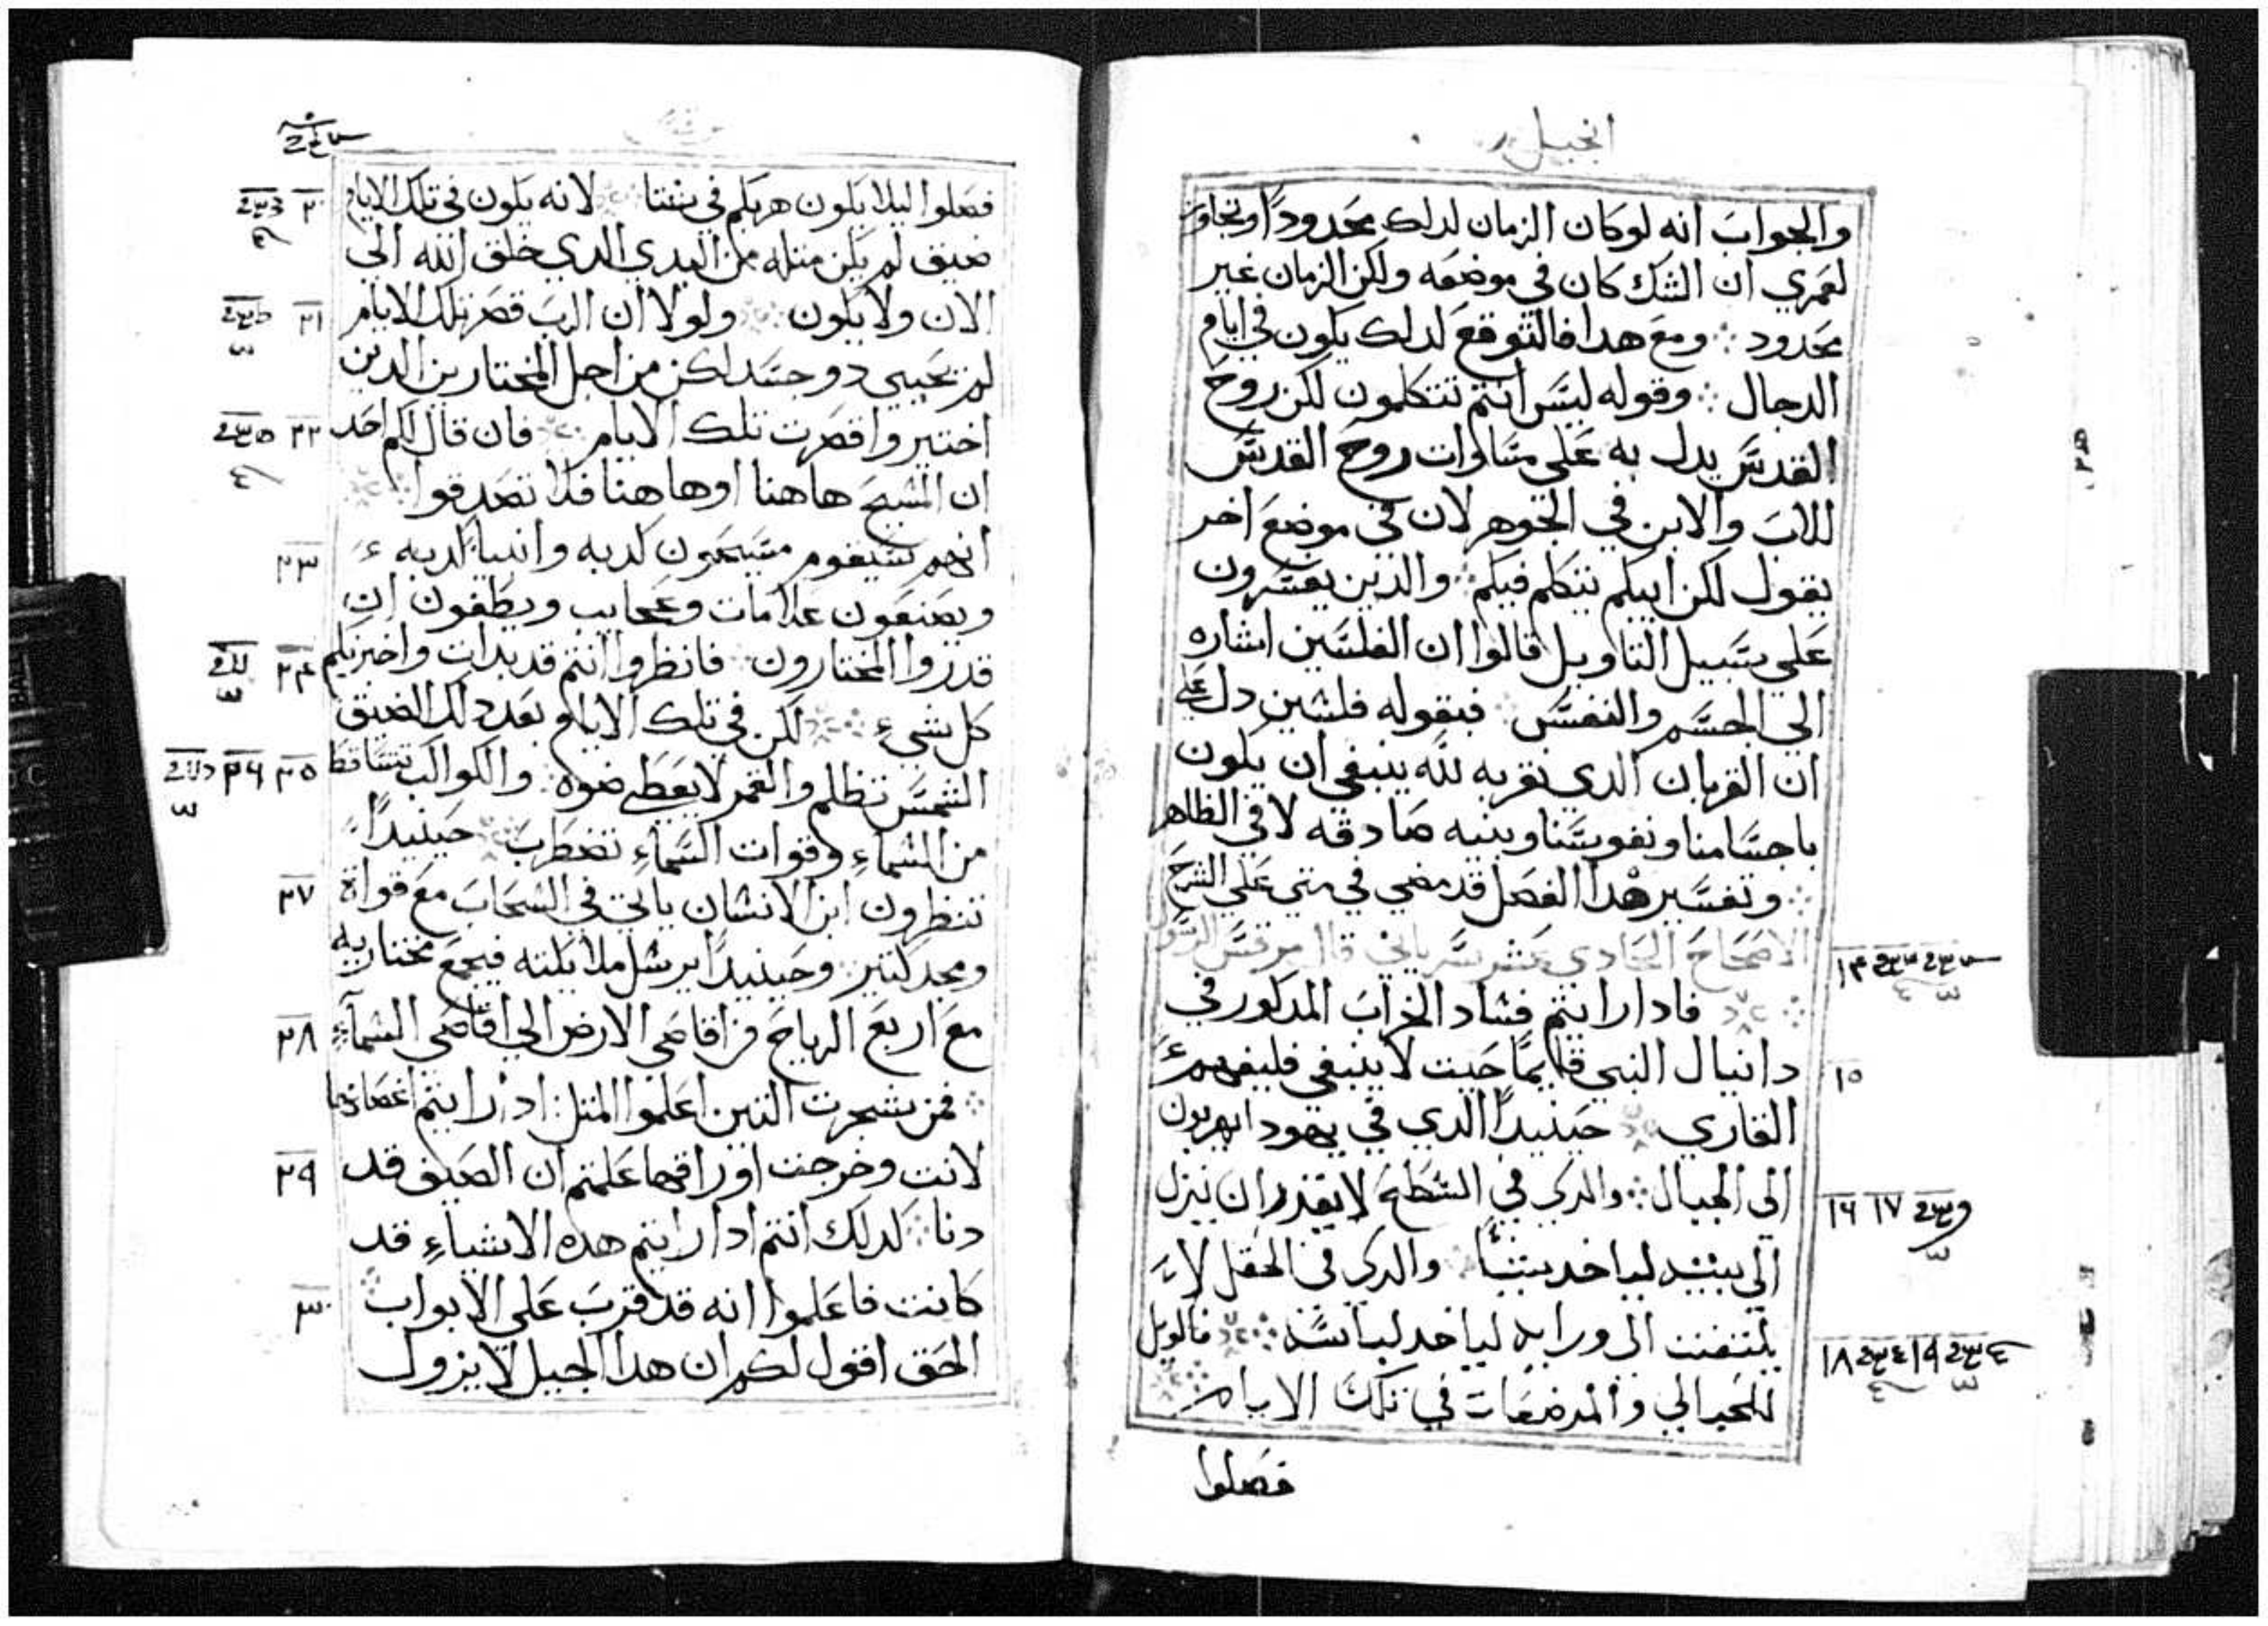 انجيل
والجواب انه لو كان الزمان لدلك محدوداً وتجاوز
لعمري ان الشك كان في موضعه ولكن الزمان غير
محدود ومع هدا فالتوقع لدلك يكون في ايام
الدجال وقوله ليس انتم تتكلمون لكن روح
القدس يدل به على متساوات روح القدس
للاب والابن في الجوهر لان في موضع اخر
يقول لكن ابيكم يتكلم فيكم والدين يفسرون
على سبيل التاويل قالوا ان الفلسين اشاره
الي الجسم والنفس فبقوله فلسين دل على
ان القربان الدي نقربه لله ينبغي ان يكون
باجسامنا ونفوسنا وبنيه صادقه لا في الظاهر
وتفسير هدا الفصل قد مضي في متي علي الشرح
الاصحاح الحادي عشر سرياني قال مرقس الرسول
١٤
فادا رايتم فساد الخراب المدكور في
دانيال النبي قايمًا حيت لا ينبغي فليفهم
١٥
القاري حينيداً الدي في يهودا يهربون
الى الجبال والدي في السطح لا يقدر ان ينزل
١٦ ١٧
الى بيته لياخد شياً والدي في الحقل لا
يلتفت الى ورايه لياخد لباسه فالويل
١٨ ١٩
للحبالي والمرضعات في تلك الايام
فصلوا
فصلوا ليلا يكون هربكم في شتا لانه يكون في تلك الايام
٢٠
ضيق لم يكن متله من البدي الدي خلق الله الى
الان ولا يكون ولولا ان الرب قصر تلك الايام
٢١
لم يحيي دو جسد لكن من اجل المختارين الدين
اختيروا قصرت تلك الايام فان قال لكم احد
٢٢
ان المسيح هاهنا او هاهنا فلا تصدقوا
انهم سيقوم مسيحيون كدبه وانبيا كدبه
٢٣
ويصنعون علامات وعجايب ويطغون ان
قدروا المختارون فانظروا انتم قد بدات واخبرتكم
٢٤
كل شيء لكن في تلك الايام بعد دلك الضيق
الشمس تظلم والقمر لا يعطي ضوه والكواكب تتساقط
٢٥ ٢٦
من السماء وقوات السماء تضطرب حينيداً
تنظرون ابن الانسان ياتي في السحاب مع قواة
٢٧
ومجد كتير وحينيداً يرسل ملايكته فيجمع مختاريه
مع اربع الرياح من اقاصي الارض الي اقاصي السماء
٢٨
فمن شجرت التين اعلموا المتل ادا رايتم اغصانها
لانت وخرجت اوراقها علمتم ان الصيف قد
٢٩
دنا كدلك انتم ادا رايتم هده الاشياء قد
كانت فاعلموا انه قد قرب على الابواب
٣٠
الحق اقول لكم ان هدا الجيل لا يزول